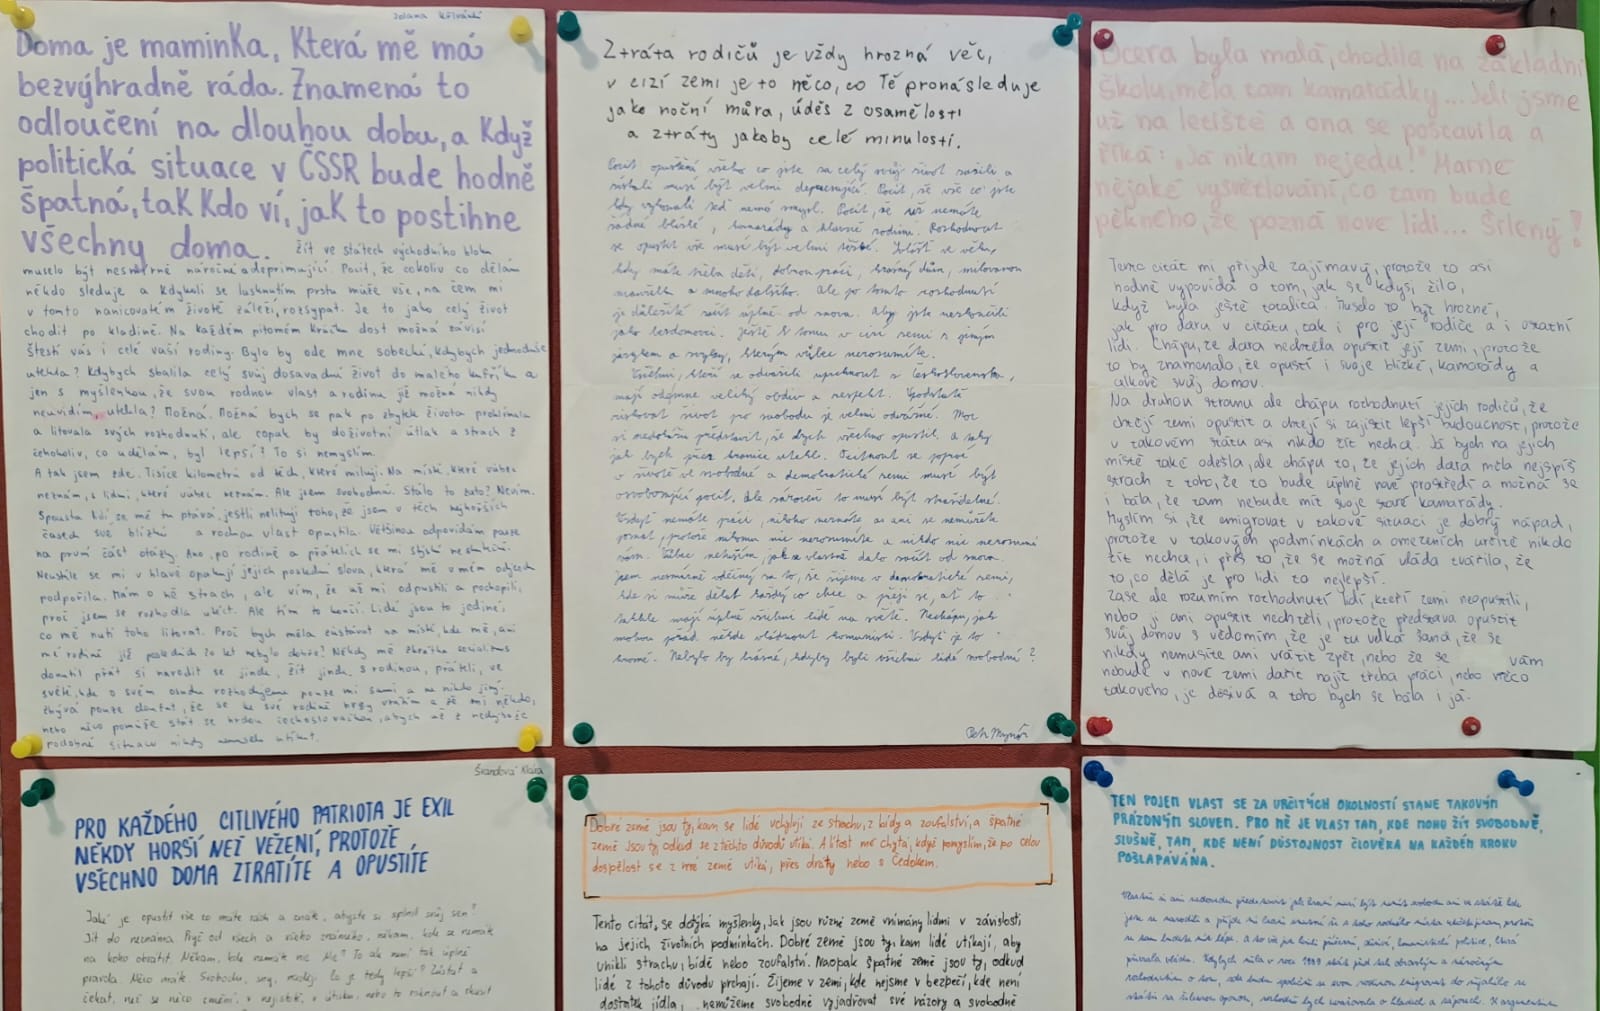 Doma je maminka, která mě má
bezvýhradně ráda. Znamená to
odloučení na dlouhou dobu, a když
politická situace v ČSSR bude hodně
špatná, tak kdo ví, jak to postihne
všechny doma.
žít ve státech východního bloku
muselo být nesmírně náročné a deprimující. Pocit, že cokoliv co dělám
někdo sleduje a kdykoli se lusknutím prstu může vše, na čem mi
v tomto nanicovatém životě záleží, rozsypat. Je to jako celý život
chodit po kladině. Na každém pitomém kroku dost možná závisí
štěstí vás i celé vaší rodiny. Bylo by ode mne sobecké, kdybych jednoduše
utekla? Kdybych sbalila celý svůj dosavadní život do malého kufříku a
jen s myšlenkou, že svou rodnou vlast a rodinu již možná nikdy
neuvidím, utekla? Možná. Možná bych se pak po zbytek života proklínala
a litovala svých rozhodnutí, ale copak by doživotní útlak a strach z
čehokoliv, co udělám, byl lepší? To si nemyslím.
A tak jsem zde. Tisíce kilometrů od těch, které miluji. Na místě, které vůbec
neznám, s lidmi, které vůbec neznám. Ale jsem svobodná. Stálo to zato? Nevím.
Spousta lidí se mě tu ptává, jestli nelituji toho, že jsem v těch nejhorších
časech své blízké a rodnou vlast opustila. Většinou odpovídám pouze
na první část otázky. Ano, po rodině a přátelích se mi stýská neskutečně.
Neustále se mi v hlavě opakují jejich poslední slova, která mě v mém odjezdu
podpořila. Mám o ně strach, ale vím, že už mi odpustili a pochopili,
proč jsem se rozhodla utéct. Ale tím to končí. Lidé jsou to jediné,
co mě nutí toho litovat. Proč bych měla zůstávat na místě, kde mě, ani
mé rodině již posledních 20 let nebylo dobře? Někdy mě zkrátka socialismus
donutil přát si narodit se jinde, žít jinde s rodinou, přáteli, ve
světě, kde o svém osudu rozhodujeme pouze my sami a ne nikdo jiný.
Zbývá pouze doufat, že se ke své rodině brzy vrátím a že mi někdo,
nebo něco pomůže stát se hrdou Čechoslovačkou, abych už z
podobné situace nikdy nemusela utíkat.
Ztráta rodičů je vždy hrozná věc,
v cizí zemi je to něco, co Tě pronásleduje
jako noční můra, úděs z osamělosti
a ztráty jakoby celé minulosti.
Pocit opuštění všeho co jste za celý svůj život zažili a
získali musí být velmi depresivní. Pocit, že vše co jste
kdy vykonali teď nemá smysl. Pocit, že už nemáte
žádné blízké, kamarády a hlavně rodinu. Rozhodnout
se opustit vše musí být velmi těžké. Zvlášť ve věku,
kdy máte třeba děti, dobrou práci, krásný dům, milovanou
manželku a mnoho dalšího. Ale po tomto rozhodnutí
je důležité začít úplně od znova. Aby jste neskončili
jako bezdomovci. Ještě k tomu v cizí zemi s jiným
jazykem a zvyky, kterým vůbec nerozumíte.
Všichni, kteří se odvážili uprchnout z Československa,
mají ode mne veliký obdiv a respekt. Podstatě
riskovat život pro svobodu je velmi odvážné. Moc
si nedokážu představit, že bych všechno opustil, a taky
jak bych přes hranice utekl. Octnout se poprvé
v životě ve svobodné a demokratické zemi musí být
osvobozující pocit. Ale zároveň to musí být strašidelné.
Vždyť nemáte práci, nikoho neznáte a ani se nemůžete
poznat, protože nikomu nic nerozumíte a nikdo nic nerozumí
vám. Vůbec netuším, jak se vlastně dalo začít od znova.
Jsem nesmírně vděčný za to, že žijeme v demokratické zemi,
kde si může dělat každý co chce a přeji si, ať to
takhle mají úplně všichni lidé na světě. Nechápu, jak
mohou pořád někde vládnout komunisti. Vždyť je to
hrozné. Nebylo by krásné, kdyby byli všichni lidé svobodní?
Petr Mynář
Dcera byla malá, chodila na základní
školu, měla tam kamarádky... Jeli jsme
už na letiště a ona se postavila a
říká: „Já nikam nejedu!" Marné
nějaké vysvětlování, co tam bude
pěkného, že pozná nové lidi... Šílený!
Tento citát mi přijde zajímavý, protože to asi
hodně vypovídá o tom, jak se kdysi žilo,
když byla ještě totalita. Muselo to být hrozné,
jak pro dceru v citátu, tak i pro její rodiče a i ostatní
lidi. Chápu, že dcera nechtěla opustit její zemi, protože
to by znamenalo, že opustí i svoje blízké, kamarády a
celkově svůj domov.
Na druhou stranu ale chápu rozhodnutí jejích rodičů, že
chtějí zemi opustit a chtějí si zajistit lepší budoucnost, protože
v takovém státu asi nikdo žít nechce. Já bych na jejich
místě také odešla, ale chápu to, že jejich dcera měla nejspíš
strach z toho, že to bude úplně nové prostředí a možná se
i bála, že tam nebude mít svoje staré kamarády.
Myslím si, že emigrovat v takové situaci je dobrý nápad,
protože v takových podmínkách a omezeních určitě nikdo
žít nechce, i přes to, že se možná vláda tvářila, že
to, co dělá je pro lidi to nejlepší.
Zase ale rozumím rozhodnutí lidí, kteří zemi neopustili,
nebo ji ani opustit nechtěli, protože představa opustit
svůj domov s vědomím, že je tu velká šance, že se
nikdy nemusíte ani vrátit zpět, nebo že se vám
nebude v nové zemi dařit najít třeba práci, nebo něco
takového, je děsivá a toho bych se bála i já.
Švandová Klára
PRO KAŽDÉHO CITLIVÉHO PATRIOTA JE EXIL
NĚKDY HORŠÍ NEŽ VĚZENÍ, PROTOŽE
VŠECHNO DOMA ZTRATÍTE A OPUSTÍTE
Jaké je opustit vše co máte rádi a znáte, abyste si splnil svůj sen?
Jít do neznáma. Pryč od všech a všeho známého, někam, kde se nemáte
na koho obrátit. Někam, kde nemáte nic. Ale? To ale není tak úplně
pravda. Něco máte. Svobodu, sny, naději. Co je tedy lepší? Zůstat a
čekat, než se něco změní, v nejistotě, v útisku, nebo to risknout a zkusit
Dobré země jsou ty, kam se lidé uchylují ze strachu, z bídy a zoufalství, a špatné
země jsou ty, odkud se z těchto důvodů utíká. A lítost mě chytá, když pomyslím, že po celou
dospělost se z mé země utíká, přes dráty nebo s Čedokem.
Tento citát, se dotýká myšlenky, jak jsou různé země vnímány lidmi v závislosti
na jejich životních podmínkách. Dobré země jsou ty, kam lidé utíkají, aby
unikli strachu, bídě nebo zoufalství. Naopak špatné země jsou ty, odkud
lidé z tohoto důvodu prchají. Žijeme v zemi, kde nejsme v bezpečí, kde není
dostatek jídla, nemůžeme svobodně vyjadřovat své názory a svobodně
TEN POJEM VLAST SE ZA URČITÝCH OKOLNOSTÍ STANE TAKOVÝM
PRÁZDNÝM SLOVEM. PRO MĚ JE VLAST TAM, KDE MOHU ŽÍT SVOBODNĚ,
SLUŠNĚ, TAM, KDE NENÍ DŮSTOJNOST ČLOVĚKA NA KAŽDÉM KROKU
POŠLAPÁVÁNA.